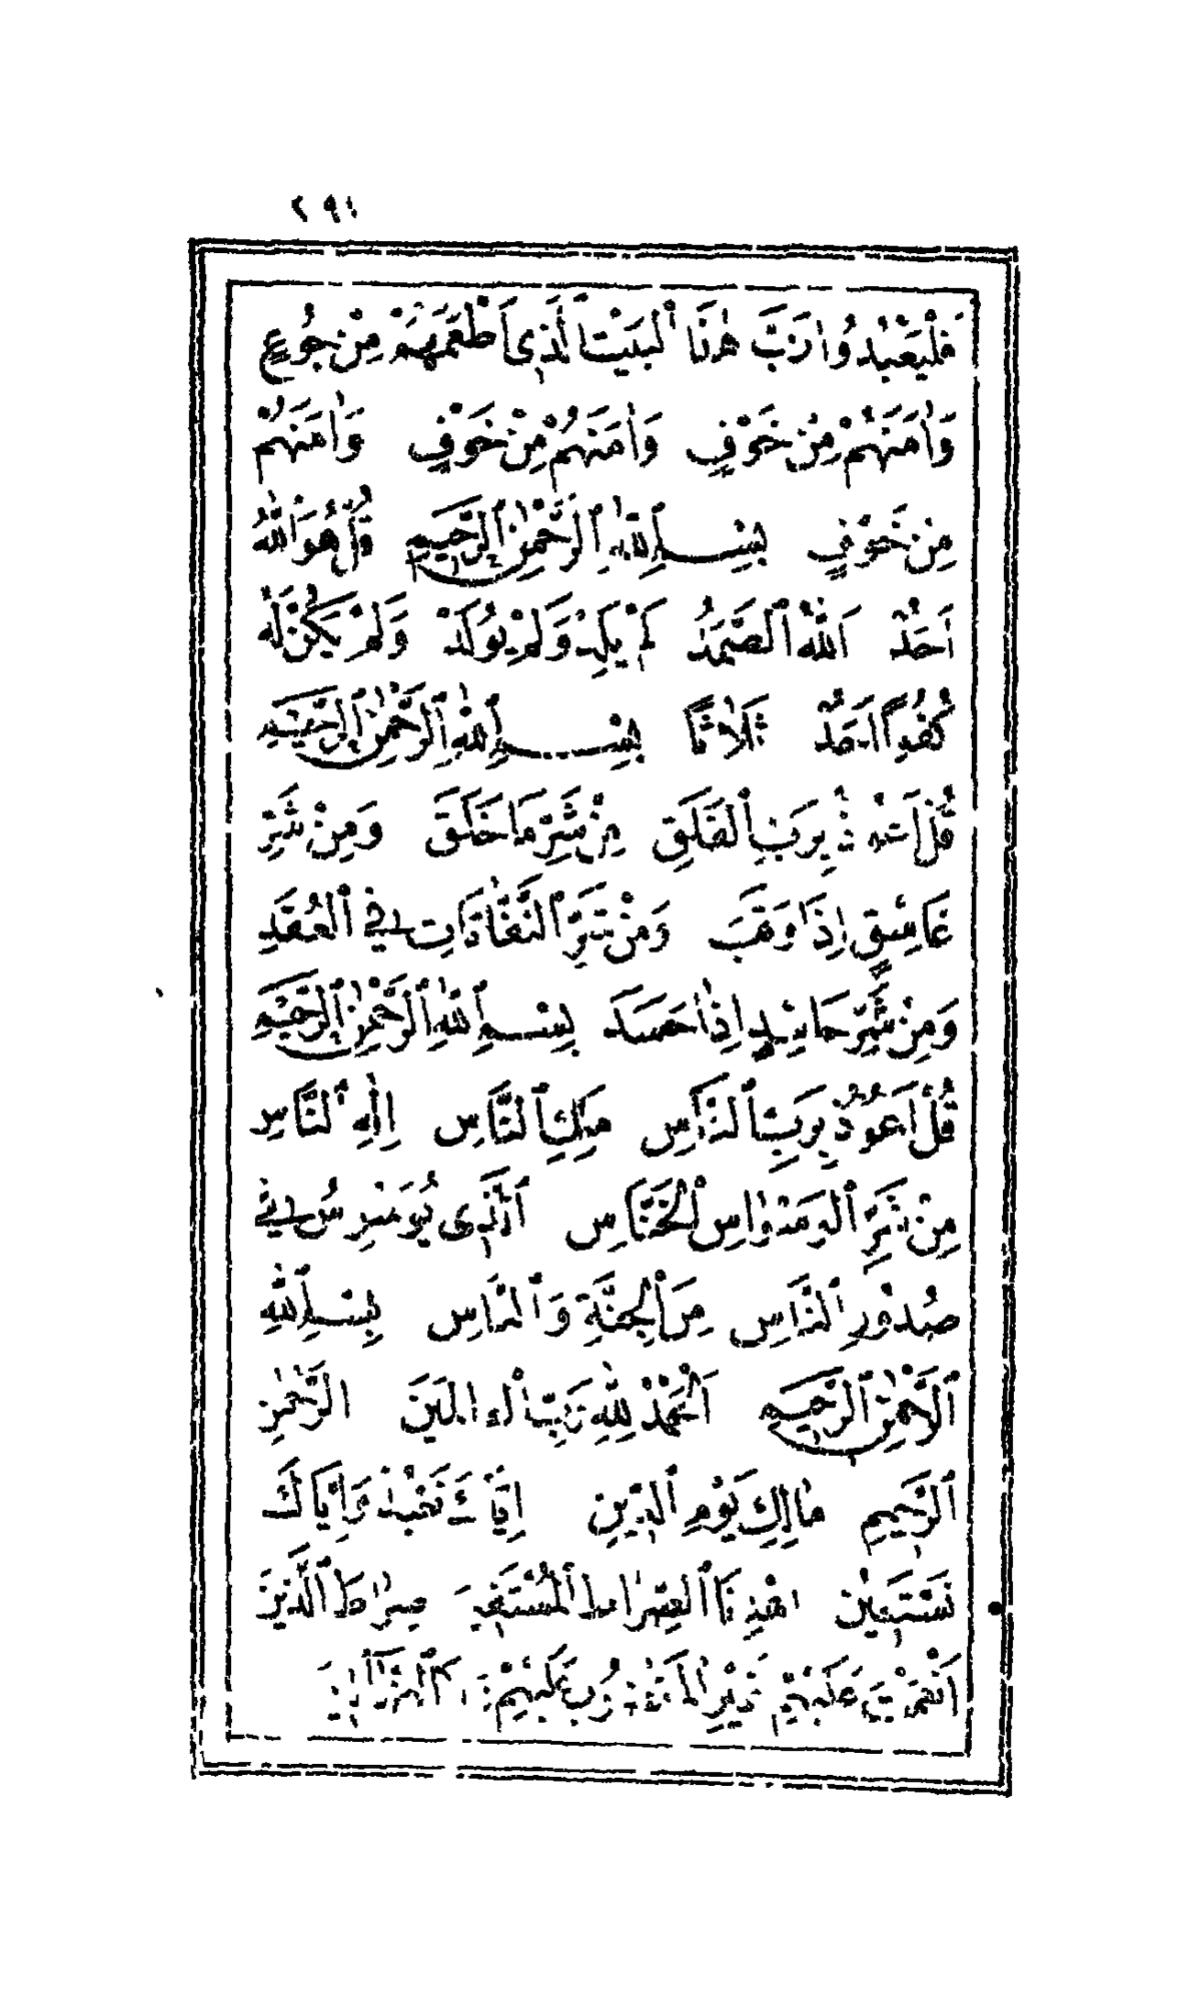 ٢٩١
فَلْيَعْبُدُوا رَبَّ هٰذَا الْبَيْتِ الَّذِى اَطْعَمَهُمْ مِنْ جُوعٍ
وَاٰمَنَهُمْ مِنْ خَوْفٍ وَاٰمَنَهُمْ مِنْ خَوْفٍ وَاٰمَنَهُمْ
مِنْ خَوْفٍ بِسْمِ اللّٰهِ الرَّحْمٰنِ الرَّحِيمِ قُلْ هُوَ اللّٰهُ
اَحَدٌ اَللّٰهُ الصَّمَدُ لَمْ يَلِدْ وَلَمْ يُولَدْ وَلَمْ يَكُنْ لَهُ
كُفُوًا اَحَدٌ ثَلَاثًا بِسْمِ اللّٰهِ الرَّحْمٰنِ الرَّحِيمِ
قُلْ اَعُوذُ بِرَبِّ الْفَلَقِ مِنْ شَرِّ مَا خَلَقَ وَمِنْ شَرِّ
غَاسِقٍ اِذَا وَقَبَ وَمِنْ شَرِّ النَّفَّاثَاتِ فِي الْعُقَدِ
وَمِنْ شَرِّ حَاسِدٍ اِذَا حَسَدَ بِسْمِ اللّٰهِ الرَّحْمٰنِ الرَّحِيمِ
قُلْ اَعُوذُ بِرَبِّ النَّاسِ مَلِكِ النَّاسِ اِلٰهِ النَّاسِ
مِنْ شَرِّ الْوَسْوَاسِ الْخَنَّاسِ اَلَّذِى يُوَسْوِسُ فِي
صُدُورِ النَّاسِ مِنَ الْجِنَّةِ وَالنَّاسِ بِسْمِ اللّٰهِ
الرَّحْمٰنِ الرَّحِيمِ اَلْحَمْدُ لِلّٰهِ رَبِّ الْعَالَمِينَ الرَّحْمٰنِ
الرَّحِيمِ مَالِكِ يَوْمِ الدِّينِ اِيَّاكَ نَعْبُدُ وَاِيَّاكَ
نَسْتَعِينُ اهْدِنَا الصِّرَاطَ الْمُسْتَقِيمَ صِرَاطَ الَّذِينَ
اَنْعَمْتَ عَلَيْهِمْ غَيْرِ الْمَغْضُوبِ عَلَيْهِمْ وَلَا الضَّالِّينَ